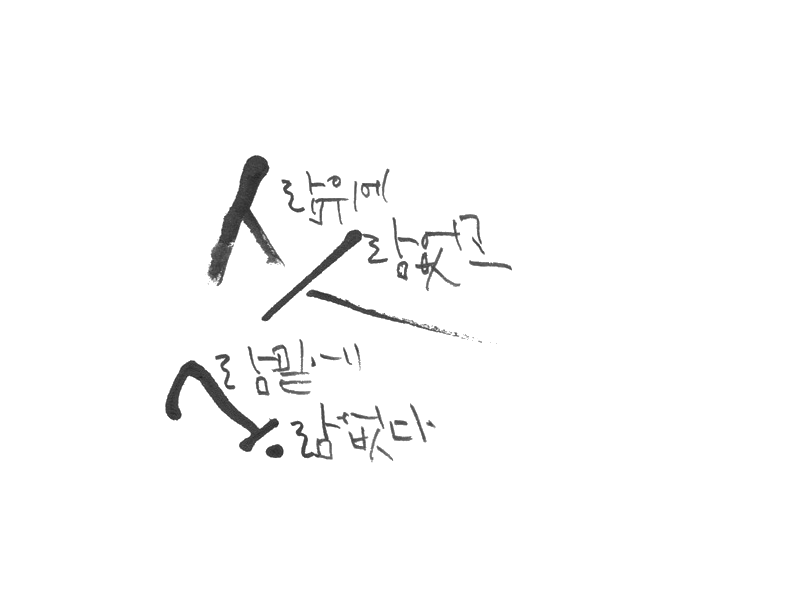 사람위에
사람없고
사람밑에
사람없다.